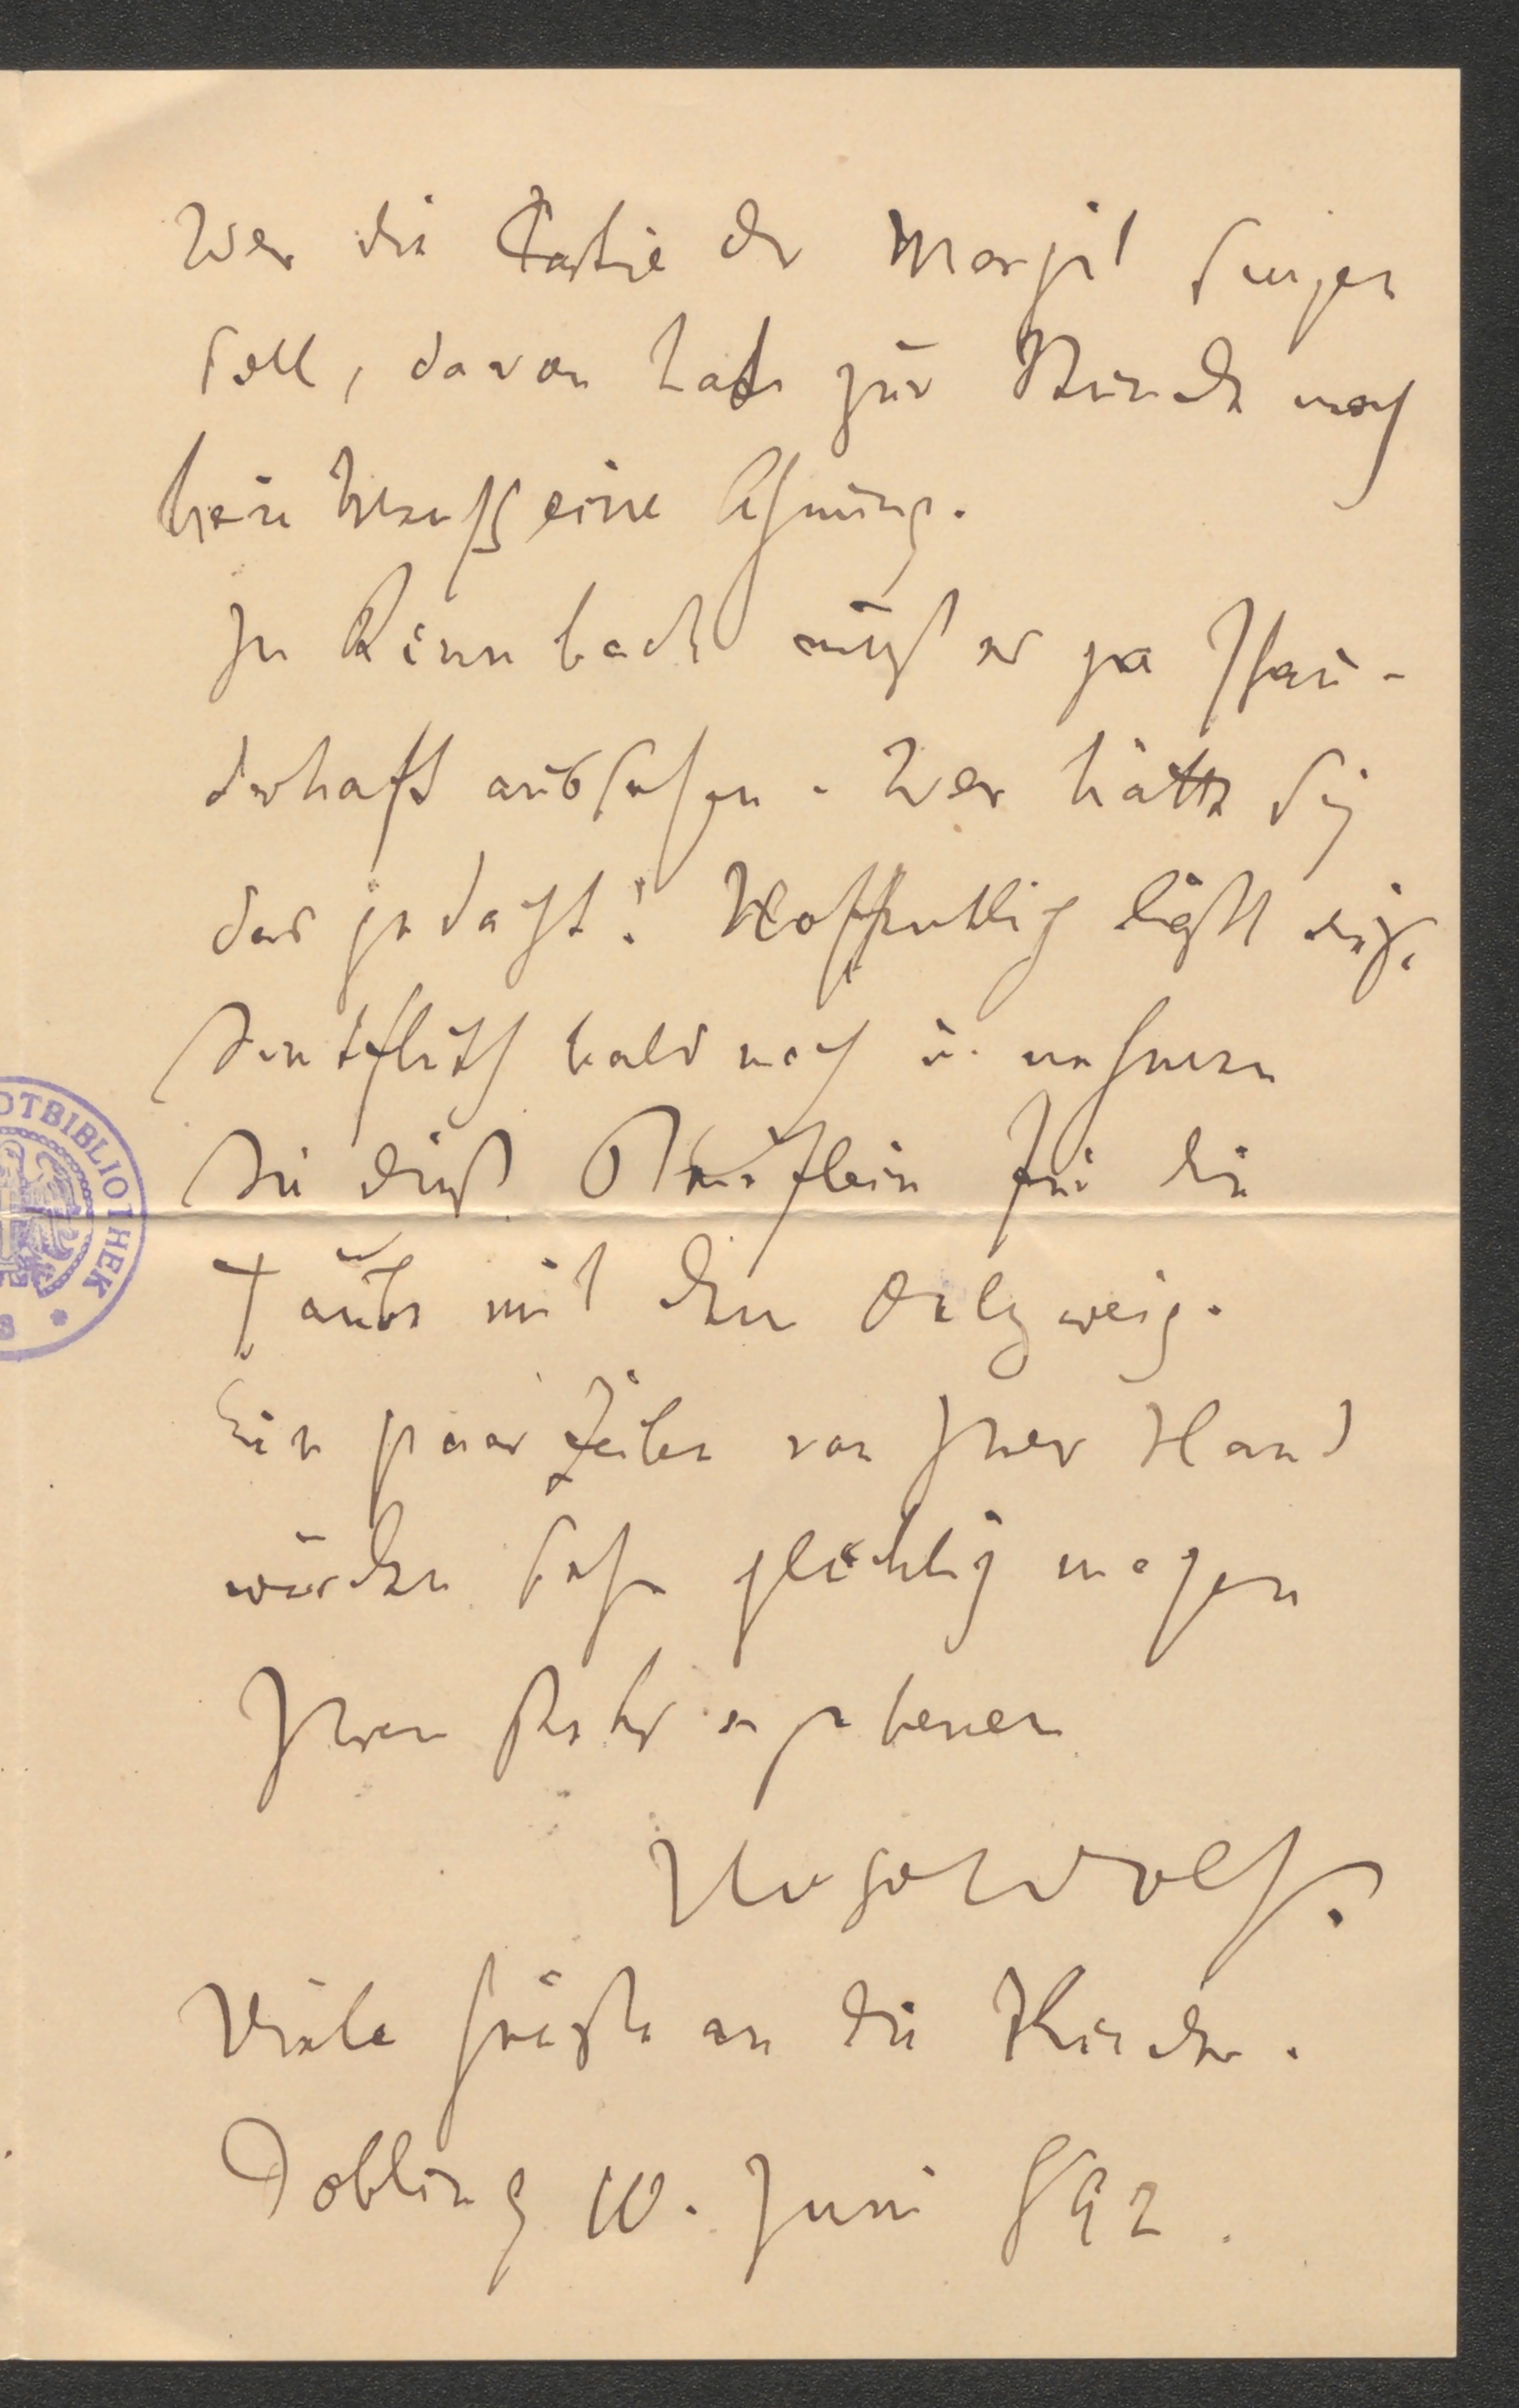 Wer die Partie der Margit singen
soll, davon hat zur Stunde noch
kein Mensch eine Ahnung.
In Rinnbach muß es ja schau-
derhaft aussehen. Wer hätte sich
das gedacht! Hoffentlich läßt diese
Sintfluth bald nach u. nehmen
Sie dieß Brieflein für die
Taube mit dem Oelzweig.
Ein paar Zeilen von Ihrer Hand
würden sehr glücklich machen
Ihren stets ergebenen
Hugo Wolf.
Viele Grüße an die Kinder.
Döbling 10. Juni 892.
DTBIBLIOTHEK